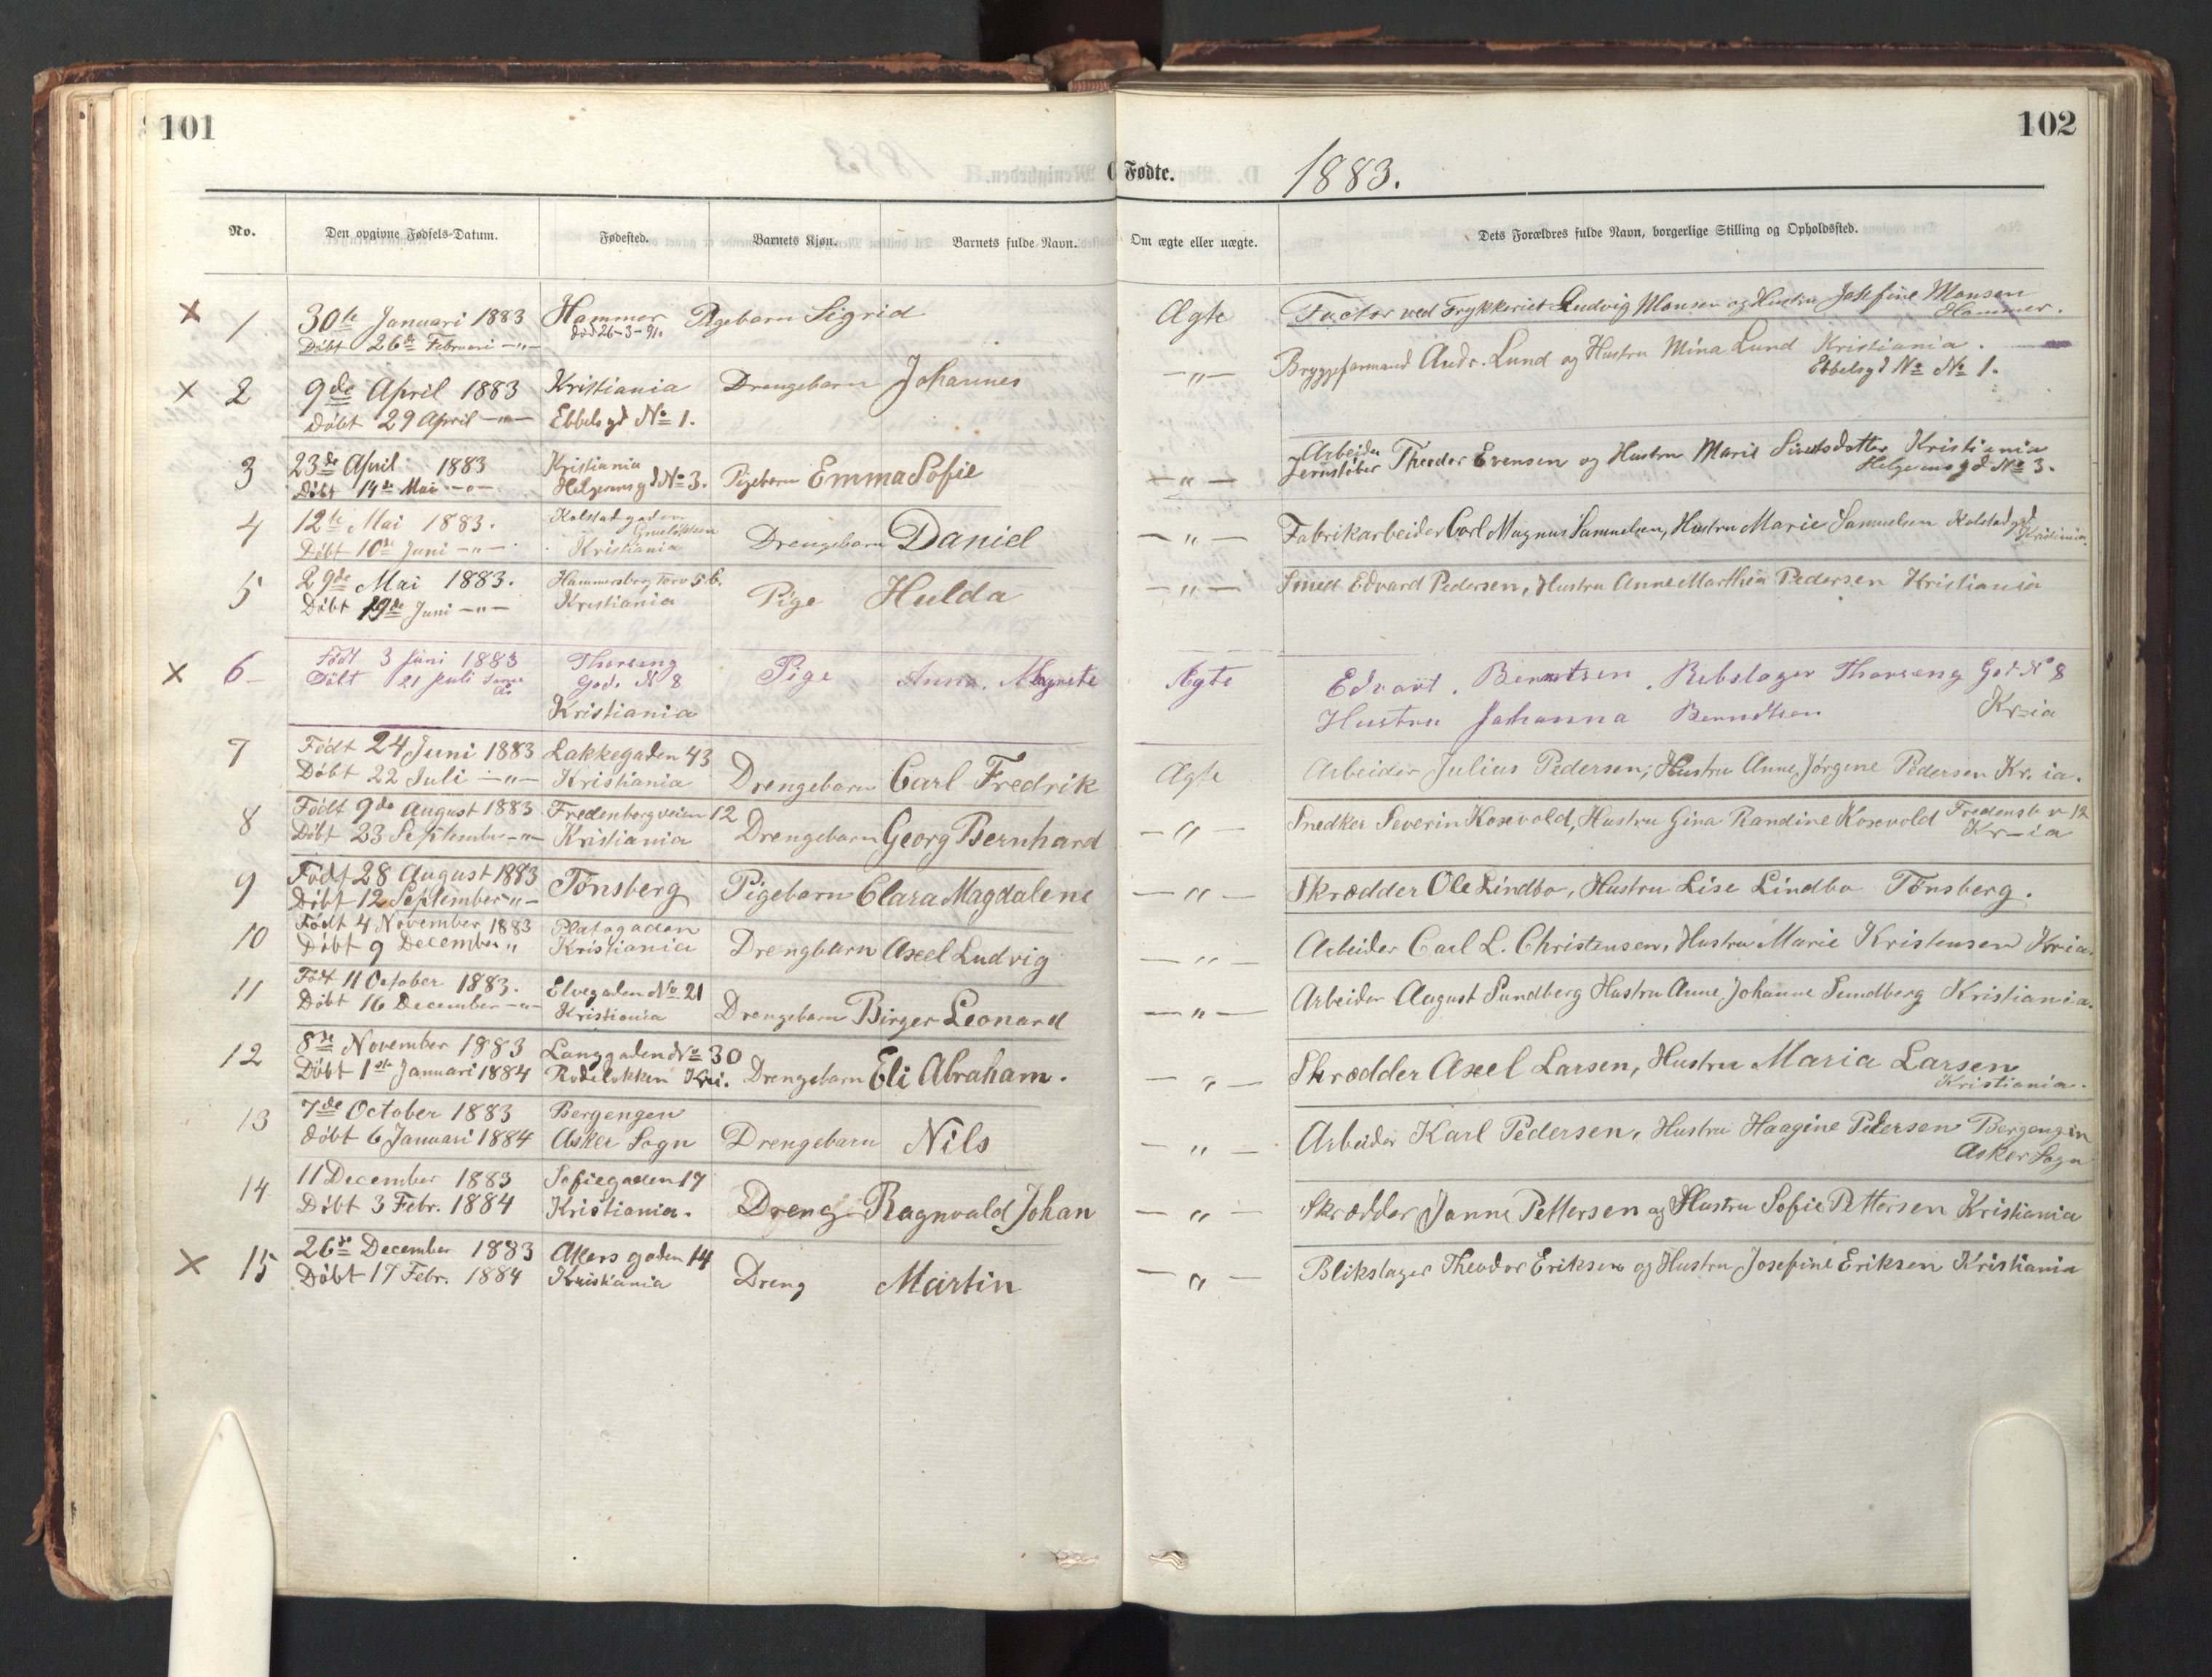 101
102
Fødte. 1883.
No. Den opgivne Fødsels-Datum. Fødested. Barnets Kjøn. Barnets fulde Navn. Om ægte eller uægte. Dets Forældres fulde Navn, borgerlige Stilling og Opholdssted.
× 1 30te Januari 1883 Hammer Pigebarn Sigrid Ægte Factor ved Trykkeriet Ludvig Monsen og Hustru Josefine Monsen
Døbt 26de Februari -"- død 26-3-91. Hammer.
× 2 9de April 1883 Kristiania Drengebarn Johannes -"- Bryggeformand Andr. Lund og Hustru Mina Lund Kristiania.
Døbt 29 April -"- Ebbelsgd No 1. Ebbelsgd No No 1.
3 23de April 1883 Kristiania Pigebarn Emma Sofie -"- Arbeider
Jernstøber Theodor Evensen og Hustru Marie Kristiania
Døbt 14de Mai -"- Helgesensgd No 3. Helgesensgd No 3.
4 12te Mai 1883. Kolstadgaden Drengebarn Daniel -"- Fabrikarbeider Carl Magnus Samuelsen, Hustru Marie Samuelsen Kolstadgd
Døbt 10de Juni -"- Kristiania Kristiania.
5 29de Mai 1883. Hammersborg Torv 5 b. Pige Hulda -"- Smed Edvard Pedersen, Hustru Anne Marthea Pedersen Kristiania
Døbt 19de Juni -"- Kristiania
× 6 Født 3 Juni 1883 Thorseng Pige Anna. Magrete Ægte Edvart. Berntsen. Rebslager Thorseng Gad. N 8
Døbt 21 Juli Gad. N 8 Hustru Johanna Berndtsen Kr-ia
Kristiania
7 Født 24 Juni 1883 Lakkegaden 43 Drengebarn Carl Fredrik Ægte Arbeider Julius Pedersen, Hustru Anne Jørgine Pedersen Kr. ia.
Døbt 22 Juli -"- Kristiania
8 Født 9de August 1883 Fredenborgveien 12 Drengebarn Georg Bernhard -"- Snedker Severin Kosevold, Hustru Gina Randine Kosevold Fredensb v 12
Døbt 23 September -"- Kristiania Kr-ia
9 Født 28 August 1883 Tønsberg Pigebarn Clara Magdalene -"- Skrædder Ole Lindbo, Hustru Lise Lindbo Tønsberg.
Døbt 12 September "-
10 Født 4 November 1883 Platogaden Drengbarn Axel Ludvig -"- Arbeider Carl L. Christensen, Hustru Marie Kristensen Kria.
Døbt 9 December " Kristiania
11 Født 11 October 1883. Elvegaden No 21 Drengebarn Birger Leonard -"- Arbeider August Sundberg Hustru Anne Johanne Sundberg Kristiania.
Døbt 16 December -"- Kristiania
12 8de November 1883 Langgaden No 30 Drengebarn Eli Abraham. -"- Skrædder Axel Larsen, Hustru Maria Larsen
Døbt 1ste Januari 1884 Rodeløkken Kri. Kristiania.
13 7de October 1883 Bergengen Drengebarn Nils -"- Arbeider Karl Pedersen, Hustru Haagine Pedersen Bergengen
døbt 6 Januari 1884 Asker Sogn Asker Sogn
14 11 December 1883 Sofiegaden 17 Dreng Ragnvald Johan -"- Skrædder Janne Pettersen og Hustru Sofie Pettersen Kristiania
Døbt 3 Febr. 1884 Kristiania.
× 15 26de December 1883 Akersgaden 14 Dreng Martin -"- Blikslager Theodor Eriksen og Hustru Josefine Eriksen Kristiania
Døbt 17 Febr. 1884 Kristiania